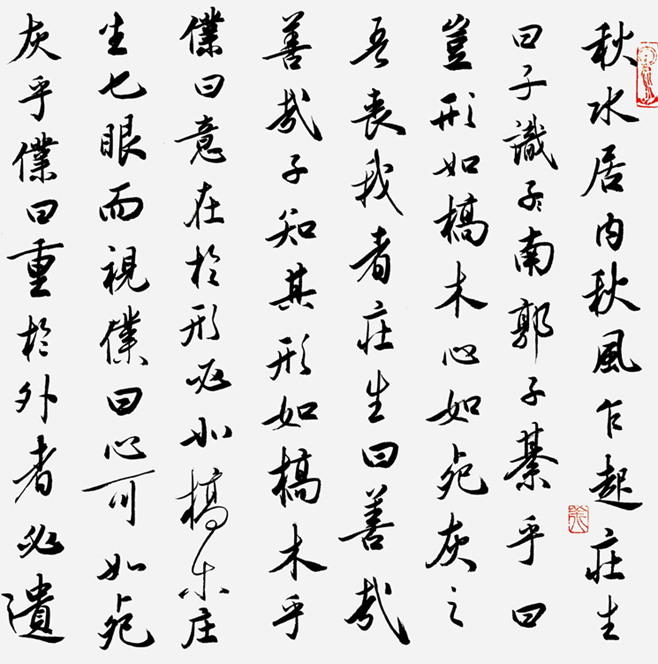 秋水居内秋風乍起莊生
曰子識子南郭子綦乎曰
豈形如槁木心如死灰之
吾喪我者莊生曰善哉
善哉子知其形如槁木乎
僕曰意在於形必如槁木庄
生也眼而視僕曰心可如死
灰乎僕曰重於外者必遺